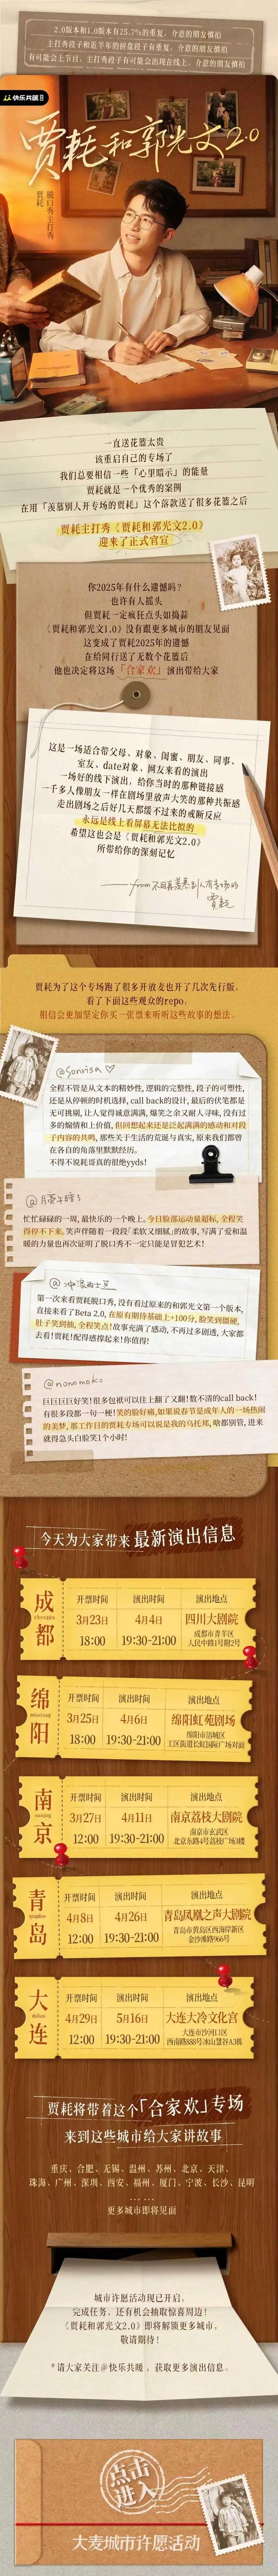 2.0版本和1.0版本有25.7%的重复，介意的朋友慎拍
主打秀段子和近半年的拼盘段子有重复，介意的朋友慎拍
有可能会上节目，主打秀段子有可能会出现在线上，介意的朋友慎拍
快乐共暖
贾耗和郭光文2.0
脱口秀主打秀
贾耗
一直送花篮太贵
该重启自己的专场了
我们总要相信一些「心里暗示」的能量
贾耗就是一个优秀的案例
在用「羡慕别人开专场的贾耗」这个落款送了很多花篮之后
贾耗主打秀《贾耗和郭光文2.0》
迎来了正式官宣
你2025年有什么遗憾吗?
也许有人摇头
但贾耗一定疯狂点头如捣蒜
《贾耗和郭光文1.0》没有跟更多城市的朋友见面
这变成了贾耗2025年的遗憾
在给同行送了无数个花篮后
他也决定将这场「合家欢」演出带给大家
这是一场适合带父母、对象、闺蜜、朋友、同事、
室友、date对象、网友来看的演出
一场好的线下演出，给你当时的那种链接感
一千多人像朋友一样在剧场里放声大笑的那种共振感
走出剧场之后好几天都缓不过来的戒断反应
永远是线上看屏幕无法比拟的
希望这也会是《贾耗和郭光文2.0》
所带给你的深刻记忆
——from 不用再羡慕别人有专场的
贾耗
贾耗为了这个专场跑了很多开放麦也开了几次先行版，
看了下面这些观众的repo，
相信会更加坚定你买一张票来听听这些故事的想法。
@Sonrisa♡
全程不管是从文本的精妙性，逻辑的完整性，段子的可塑性，
还是从停顿的时机选择，call back的设计，最后的伏笔都是
无可挑剔，让人觉得诚意满满，爆笑之余又耐人寻味，没有过
多的煽情和上价值，但回想起来还是泛起满满的感动和对段
子内容的共鸣，那些关于生活的荒诞与真实，原来我们都曾
在各自的角落里默默经历。
不得不说耗哥真的很绝yyds!
忙忙碌碌的一周，最快乐的一个晚上。今日脸部运动量超标，全程笑
得停不下来，笑声伴随着一段段「柔软又细腻」的故事，写满了爱和温
暖的力量也再次证明了脱口秀不一定只能是冒犯艺术!
第一次来看贾耗脱口秀，没有看过原来的和郭光文第一个版本，
直接来看了Beta 2.0，在原有期待基础上+100分，脸笑到僵硬，
肚子笑到抽，全程笑点!故事充了感动，不再过多剧透，大家都
去看!贾耗!配得感撑起来!你值得!
@nonomoko
巨巨巨巨好笑!很多包袱可以往上翻了又翻!数不清的call back!
有很多段都一句一梗!笑的脸好痛，如果说春节是成年人的一场热闹
的美梦，那工作日的贾耗专场可以说是我的乌托邦，啥都别管，进来
就得急头白脸笑1个小时!
今天为大家带来 最新演出信息
成都
chengdu
开票时间 演出时间 演出地点
3月23日 4月4日 四川大剧院
18:00 19:30-21:00 成都市青羊区
人民中路1号附2号
绵阳
mianyang
开票时间 演出时间 演出地点
3月25日 4月6日 绵阳虹苑剧场
18:00 19:30-21:00 绵阳市涪城区
工区街道长虹国际广场对面
南京
nanjing
开票时间 演出时间 演出地点
3月27日 4月11日 南京荔枝大剧院
12:00 19:30-21:00 南京市玄武区
北京东路4号荔枝广场3楼
青岛
qingdao
开票时间 演出时间 演出地点
4月8日 4月26日 青岛凤凰之声大剧院
12:00 19:30-21:00 青岛市黄岛区西海岸新区
金沙滩路966号
大连
dalian
开票时间 演出时间 演出地点
4月29日 5月16日 大连大冷文化宫
12:00 19:30-21:00 大连市沙河口区
西南路888号冰山慧谷A3栋
贾耗将带着这个「合家欢」专场
来到这些城市给大家讲故事
重庆、合肥、无锡、温州、苏州、北京、天津、
珠海、广州、深圳、西安、福州、厦门、宁波、长沙、昆明
……
更多城市即将见面
城市许愿活动现已开启，
完成任务，还有机会抽取惊喜周边!
《贾耗和郭光文2.0》即将解锁更多城市，
敬请期待!
*请大家关注@快乐共暖，获取更多演出信息。
点击
进入
大麦城市许愿活动